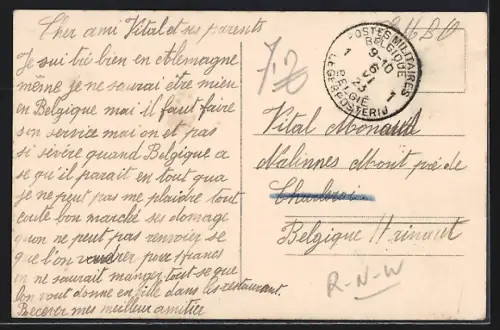 Cher ami Vital et ses parents
Je sui tré bien en Alemagne
même je ne saurai être mieu
en Belgique mai il faut faire
son service mai on et pas
si sévère quand Belgique a
se qu'il parait en tout qua
je ne peut pas me plaidre tout
coute bon marché ses domage
qu'on ne peut pas renvoier se
que l'on pour 1 francs
on ne saurait manger tout se que
l'on vout donne en ville dans les restaurant.
Recever mes meilleur amitier
72
POSTES MILITAIRES
BELGIQUE
9-10
1 6
23
BELGIE
LEGERPOSTERIJ
1
Vital
Nalinnes Mont pré de
Charleroi
Belgique Hainaut
R-N-W